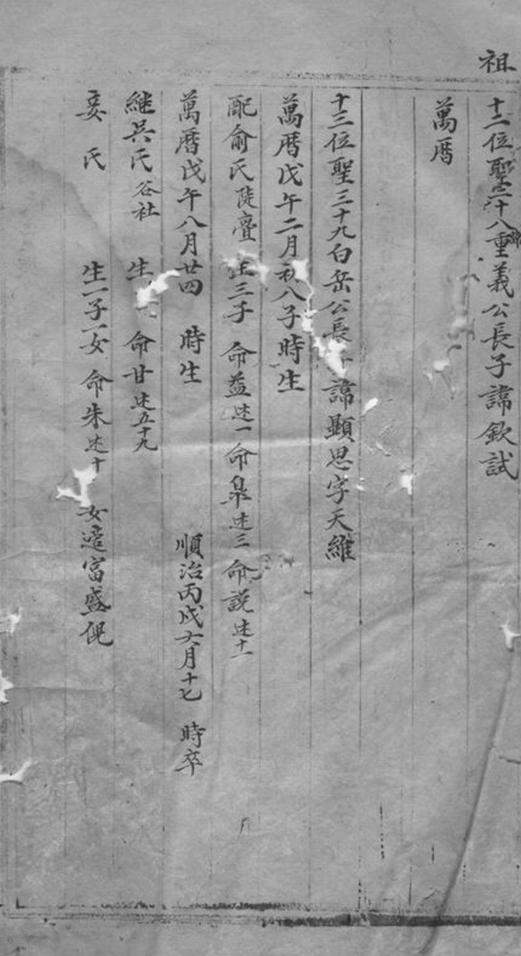 祖
十二位聖三十八重義公長子諱欽試
萬曆
十三位聖三十九白岳公長 諱顯思字天維
萬曆戊午二月初八子時生
配俞氏陡亹 生三子 命益述一命臯述三命説述十一
萬曆戊午八月廿四 時生 順治丙戌六月十七 時卒
継吳氏谷社 生 命甘述五十九
妾氏 生一子一女 命朱述十 女適富盛倪